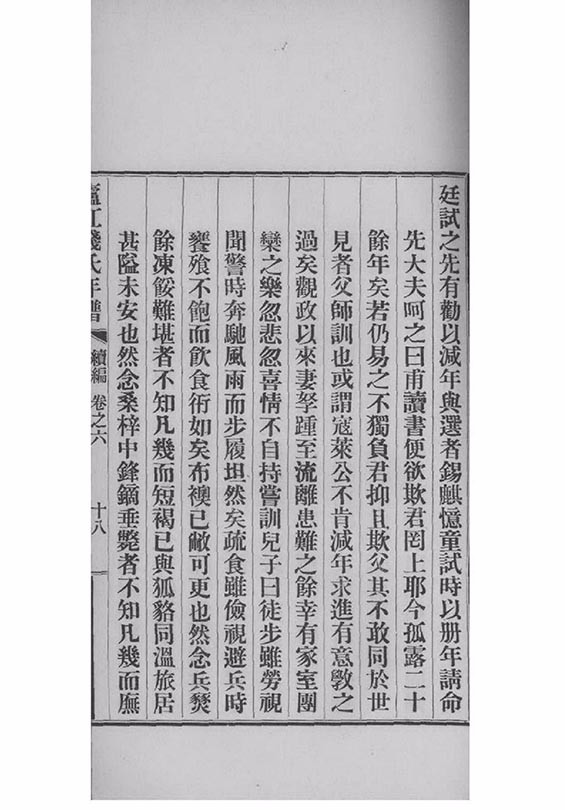 廷試之先有勸以減年與選者錫麒憶童試時以册年請命
先大夫呵之曰甫讀書便欲欺君罔上耶今孤露二十
餘年矣若仍易之不獨負君抑且欺父其不敢同於世
見者父師訓也或謂寇萊公不肯減年求進有意斅之
過矣觀政以來妻孥踵至流離患難之餘幸有家室團
欒之樂忽悲忽喜情不自持嘗訓兒子曰徒步雖勞視
聞警時奔馳風雨而步履坦然矣疏食雖儉視避兵時
饔飱不飽而飲食衎如矣布襖已敝可更也然念兵燹
餘凍餒難堪者不知凡幾而短褐已與狐貉同溫旅居
甚隘未安也然念桑梓中鋒鏑垂斃者不知凡幾而廡
廬江錢氏年譜 續編 卷之六 十八